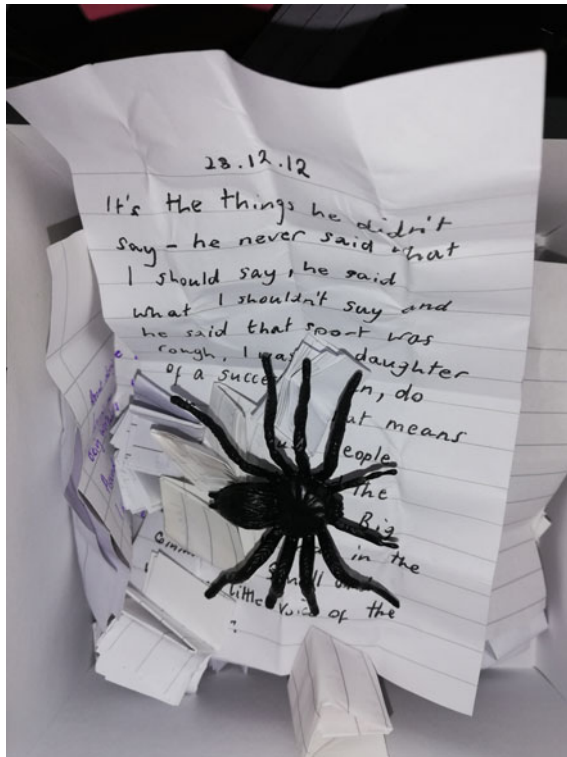 28.12.12
It's the things he didn't
say - he never said what
I should say, he said
what I shouldn't say and
he said that sport was
rough, I was daughter
of a succe n, do
ut means
eople
the
Big
in the
small
little voice of the
?